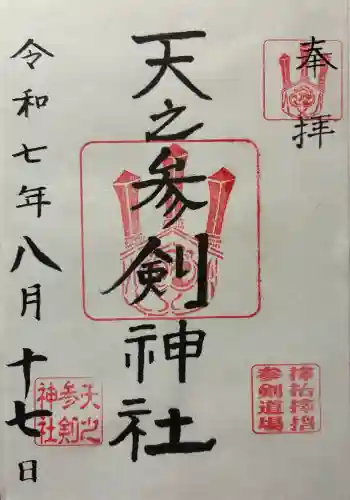 奉拝
天之参剣神社
令和七年八月十七日
天之
参剣
神社
参剣道場